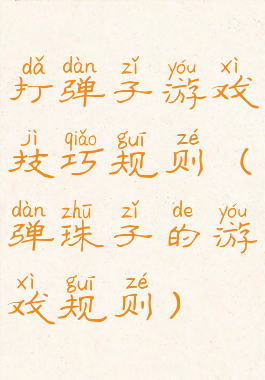 dǎ dàn zǐ yóu xì
打弹子游戏
jì qiǎo guī zé
技巧规则（
dàn zhū zǐ de yóu
弹珠子的游
xì guī zé
戏规则）